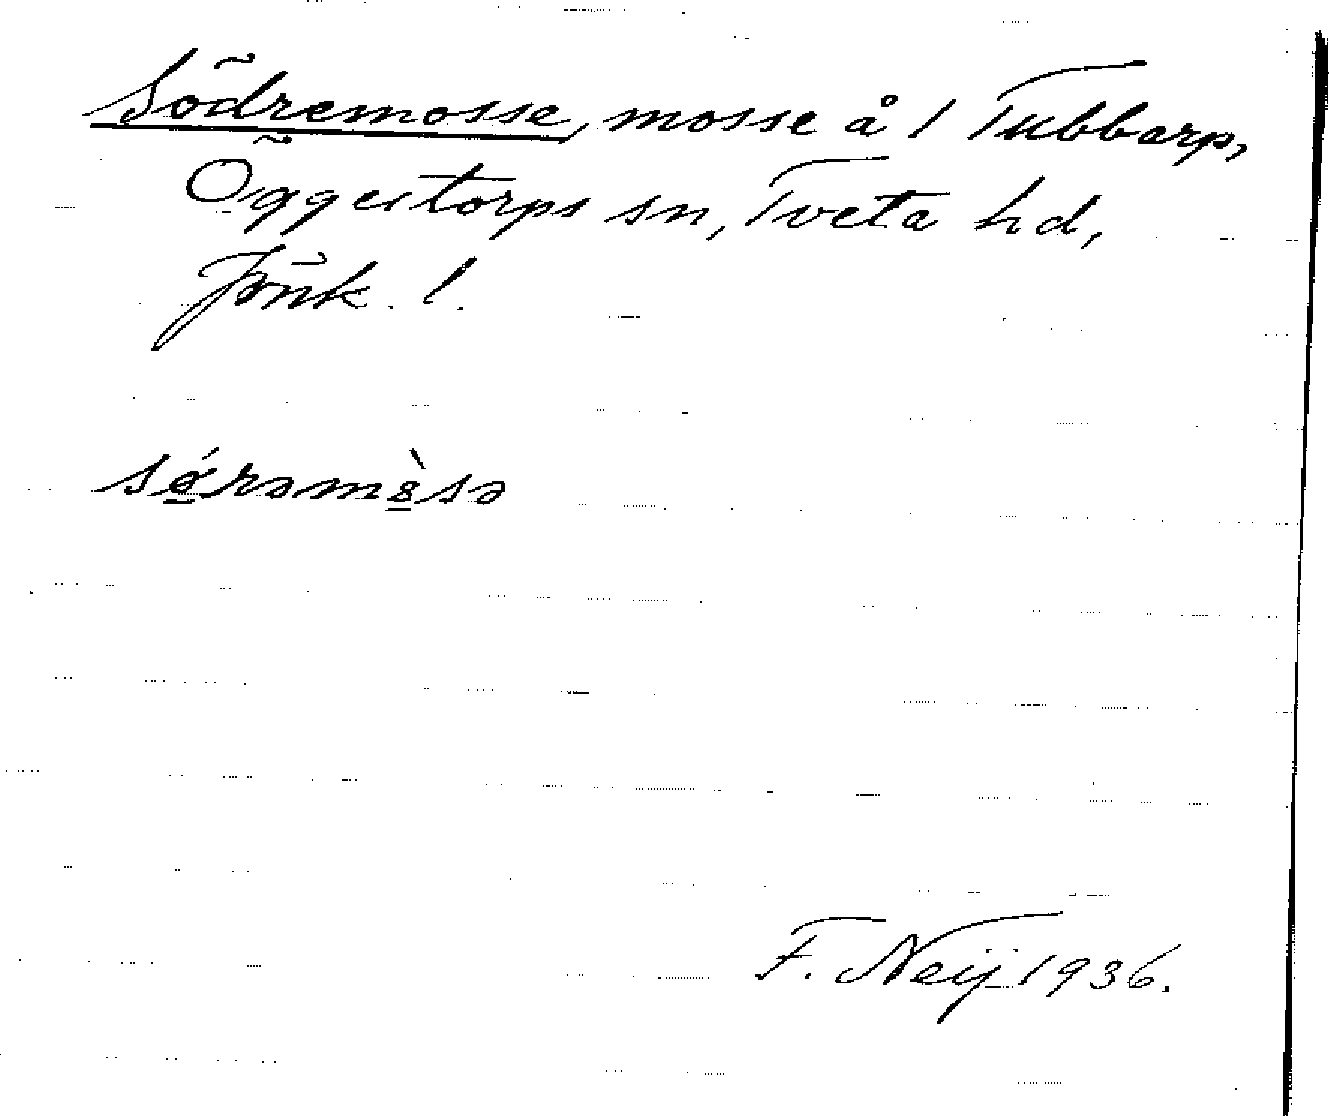 Södremosse, mosse å 1 Tubbarp,
Öggestorps sn, Tveta hd,
Jönk. l.
sǿ̱rəm 8̱̀sə
F. Neij 1936.